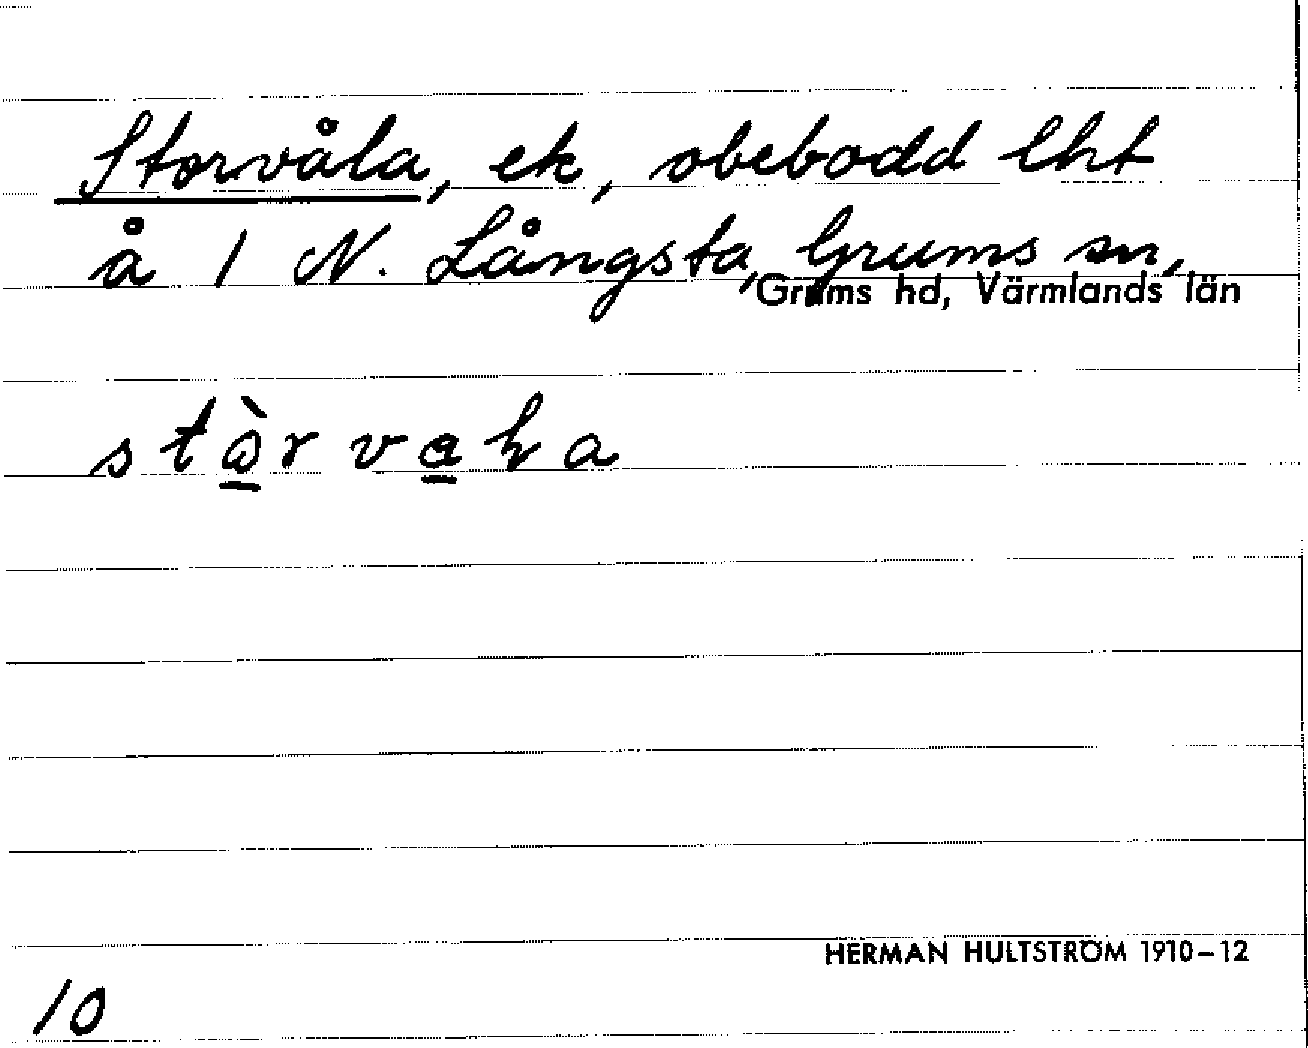 Storvåla, ek, obebodd lht
å 1 N. Långsta, Grums sn,
Grums hd, Värmlands län
HERMAN HULTSTRÖM 1910–12
10